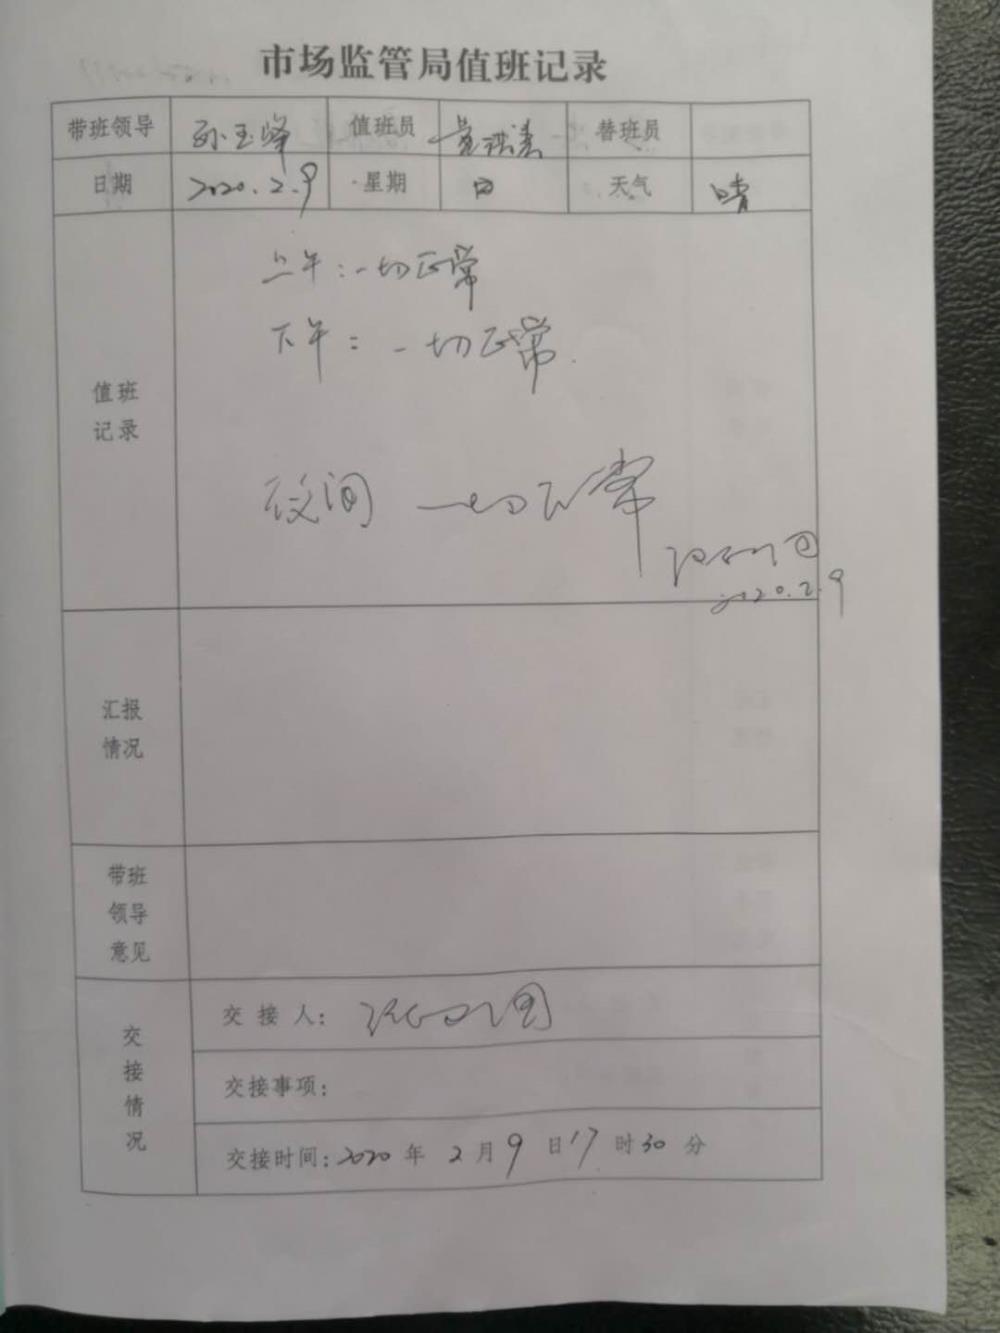 市场监管局值班记录
带班领导 孙玉峰 值班员 替班员
日期 2020.2.9 星期 日 天气 晴
上午：一切正常
下午：一切正常.
值班
记录
夜间 一切正常
2020.2.9
汇报
情况
带班
领导
意见
交接情况
交接人：
交接事项：
交接时间：2020年2月9日17时30分